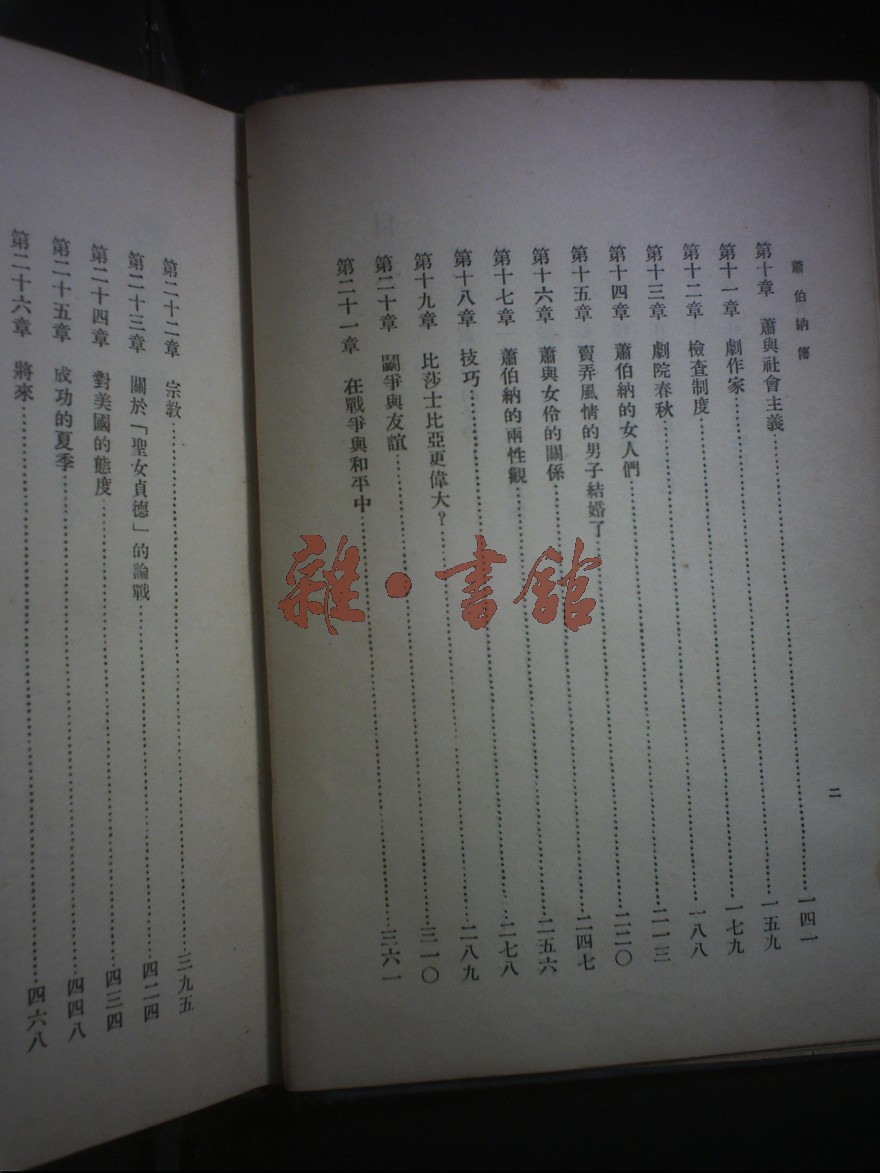 蕭伯納傳
二
第十章 蕭與社會主義……一四一
第十一章 劇作家……一五九
第十二章 檢查制度……一七九
第十三章 劇院春秋……一八八
第十四章 蕭伯納的女人們……二一三
第十五章 賣弄風情的男子結婚了……二二〇
第十六章 蕭與女伶的關係……二四七
第十七章 蕭伯納的兩性觀……二五六
第十八章 技巧……二七八
第十九章 比莎士比亞更偉大？……二八九
第二十章 鬭爭與友誼……三一〇
第二十一章 在戰爭與和平中……三六一
第二十二章 宗教……三九五
第二十三章 關於「聖女貞德」的論戰……四二四
第二十四章 對美國的態度……四三四
第二十五章 成功的夏季……四四八
第二十六章 將來……四六八
雜·書館